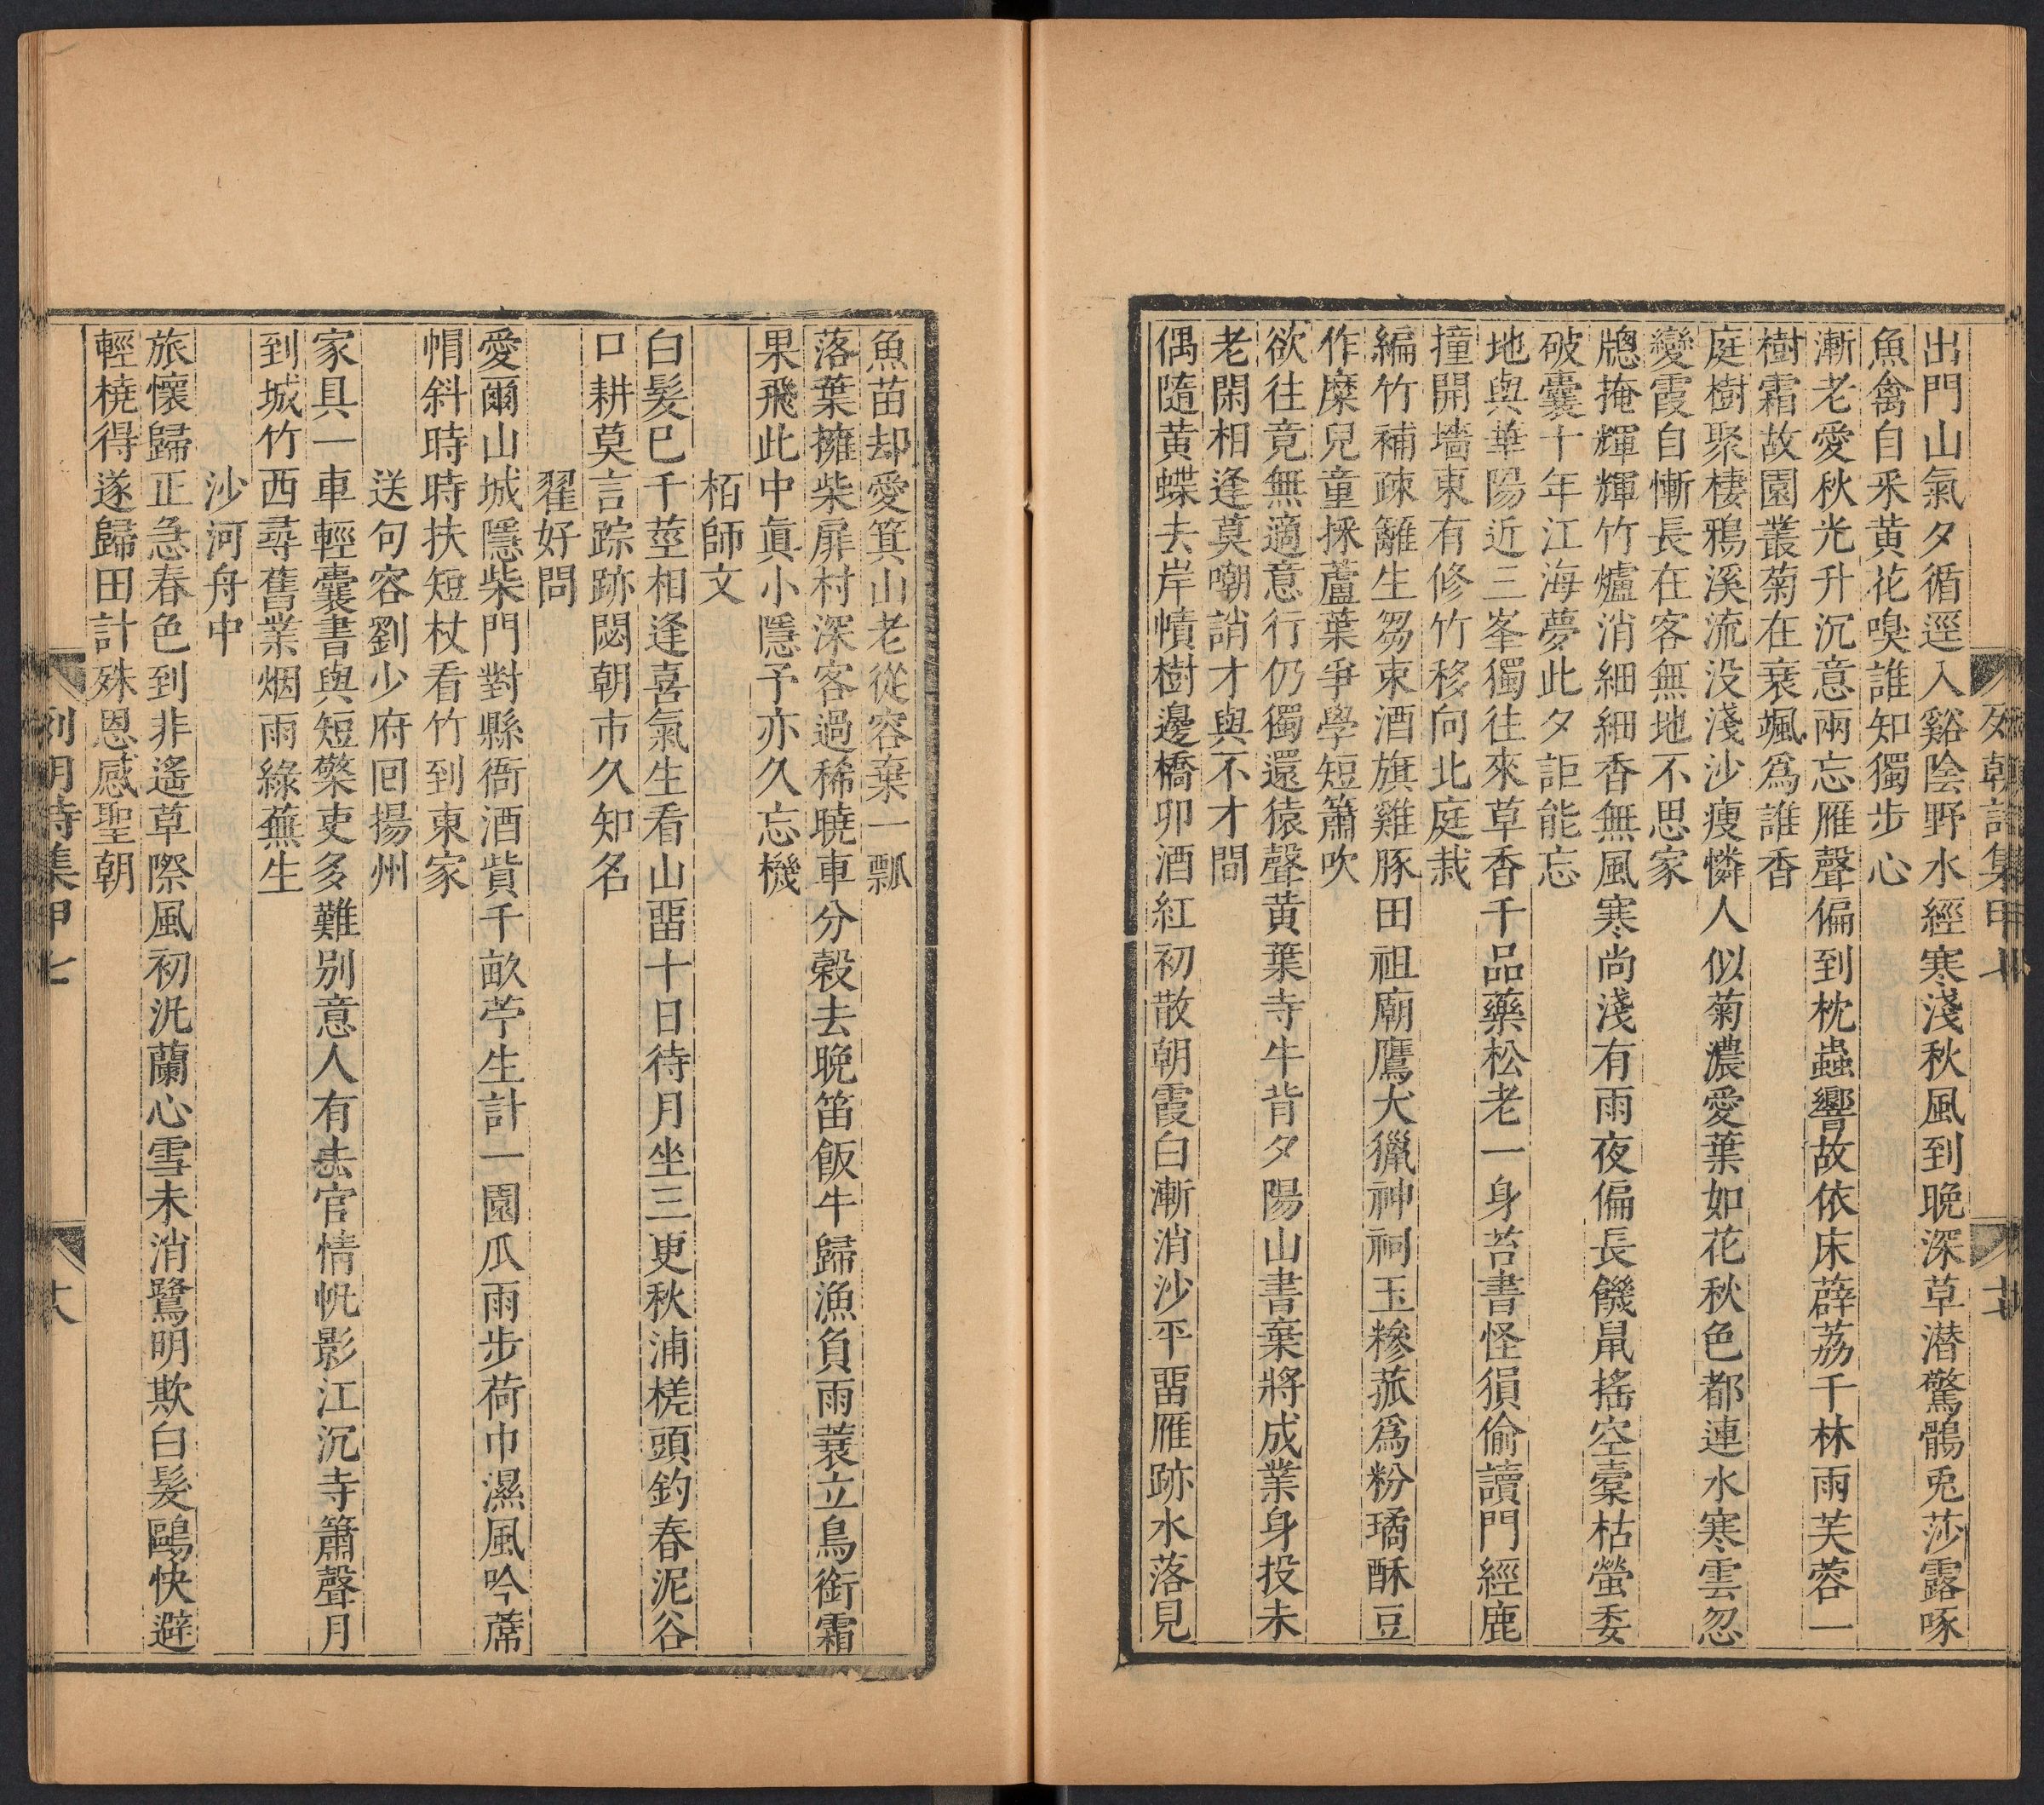 列朝詩集甲七
十七
出門山氣夕循逕入谿陰野水經寒淺秋風到晚深草潜驚鶻兎莎露啄
魚禽自釆黄花嗅誰知獨步心
漸老愛秋光升沉意兩忘雁聲偏到枕蟲響故依床薜荔千林雨芙蓉一
樹霜故園叢菊在衰颯爲誰香
庭樹聚棲鴉溪流没淺沙痩憐人似菊濃愛葉如花秋色都連水寒雲忽
變霞自慚長在客無地不思家
牎掩輝輝竹爐消細細香無風寒尚淺有雨夜偏長饑鼠搖空槖枯螢委
破囊十年江海夢此夕詎能忘
地與華陽近三峯獨往來草香千品藥松老一身苔書怪狷偷讀門經鹿
撞開墻東有修竹移向此庭栽
編竹補疎籬生芻束酒旗雞豚田祖廟鷹犬獵神祠玉糝菰爲粉璚酥豆
作糜兒童採蘆葉爭學短簫吹
欲往竟無適意行仍獨還猿聲黄葉寺牛背夕陽山書棄將成業身投未
老閑相逢莫嘲誚才與不才間
偶隨黄蝶去岸幘樹邊橋卯酒紅初散朝霞白漸消沙平畱雁跡水落見
魚苗却愛箕山老從容棄一瓢
落葉擁柴扉村深客過稀曉車分穀去晚笛飯牛歸漁負雨蓑立鳥銜霜
果飛此中眞小隱予亦久忘機
栢師文
白髪已千莖相逢喜氣生看山畱十日待月坐三更秋浦槎頭釣春泥谷
口耕莫言踪跡閟朝市久知名
翟好問
愛爾山城隱柴門對縣衙酒貲千畝苧生計一園瓜雨步荷巾濕風吟蓆
㡌斜時時扶短杖看竹到東家
送句容劉少府囘揚州
家具一車輕囊書與短檠吏多難别意人有去官情帆影江沉寺簫聲月
到城竹西尋舊業烟雨綠蕪生
沙河舟中
旅懷歸正急春色到非遙草際風初汎蘭心雪未消鷺明欺白髪鷗快避
輕橈得遂歸田計殊恩感聖朝
列朝詩集甲七
十八